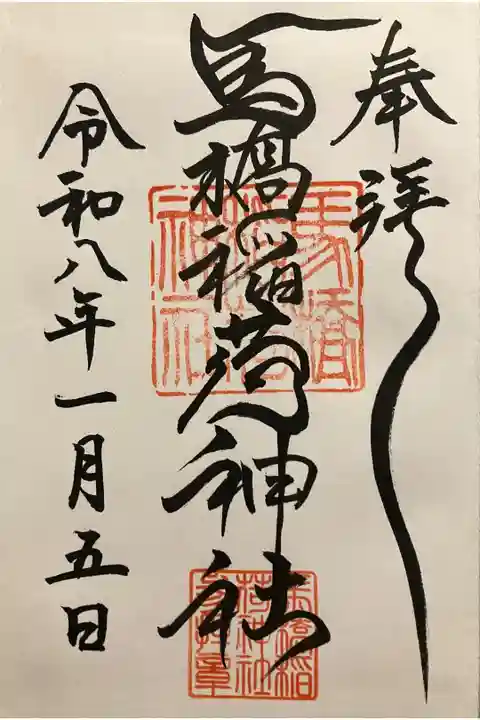 奉拝
馬橋稲荷神社
令和八年一月五日
馬橋
稲荷
神社
馬橋稲
荷神社